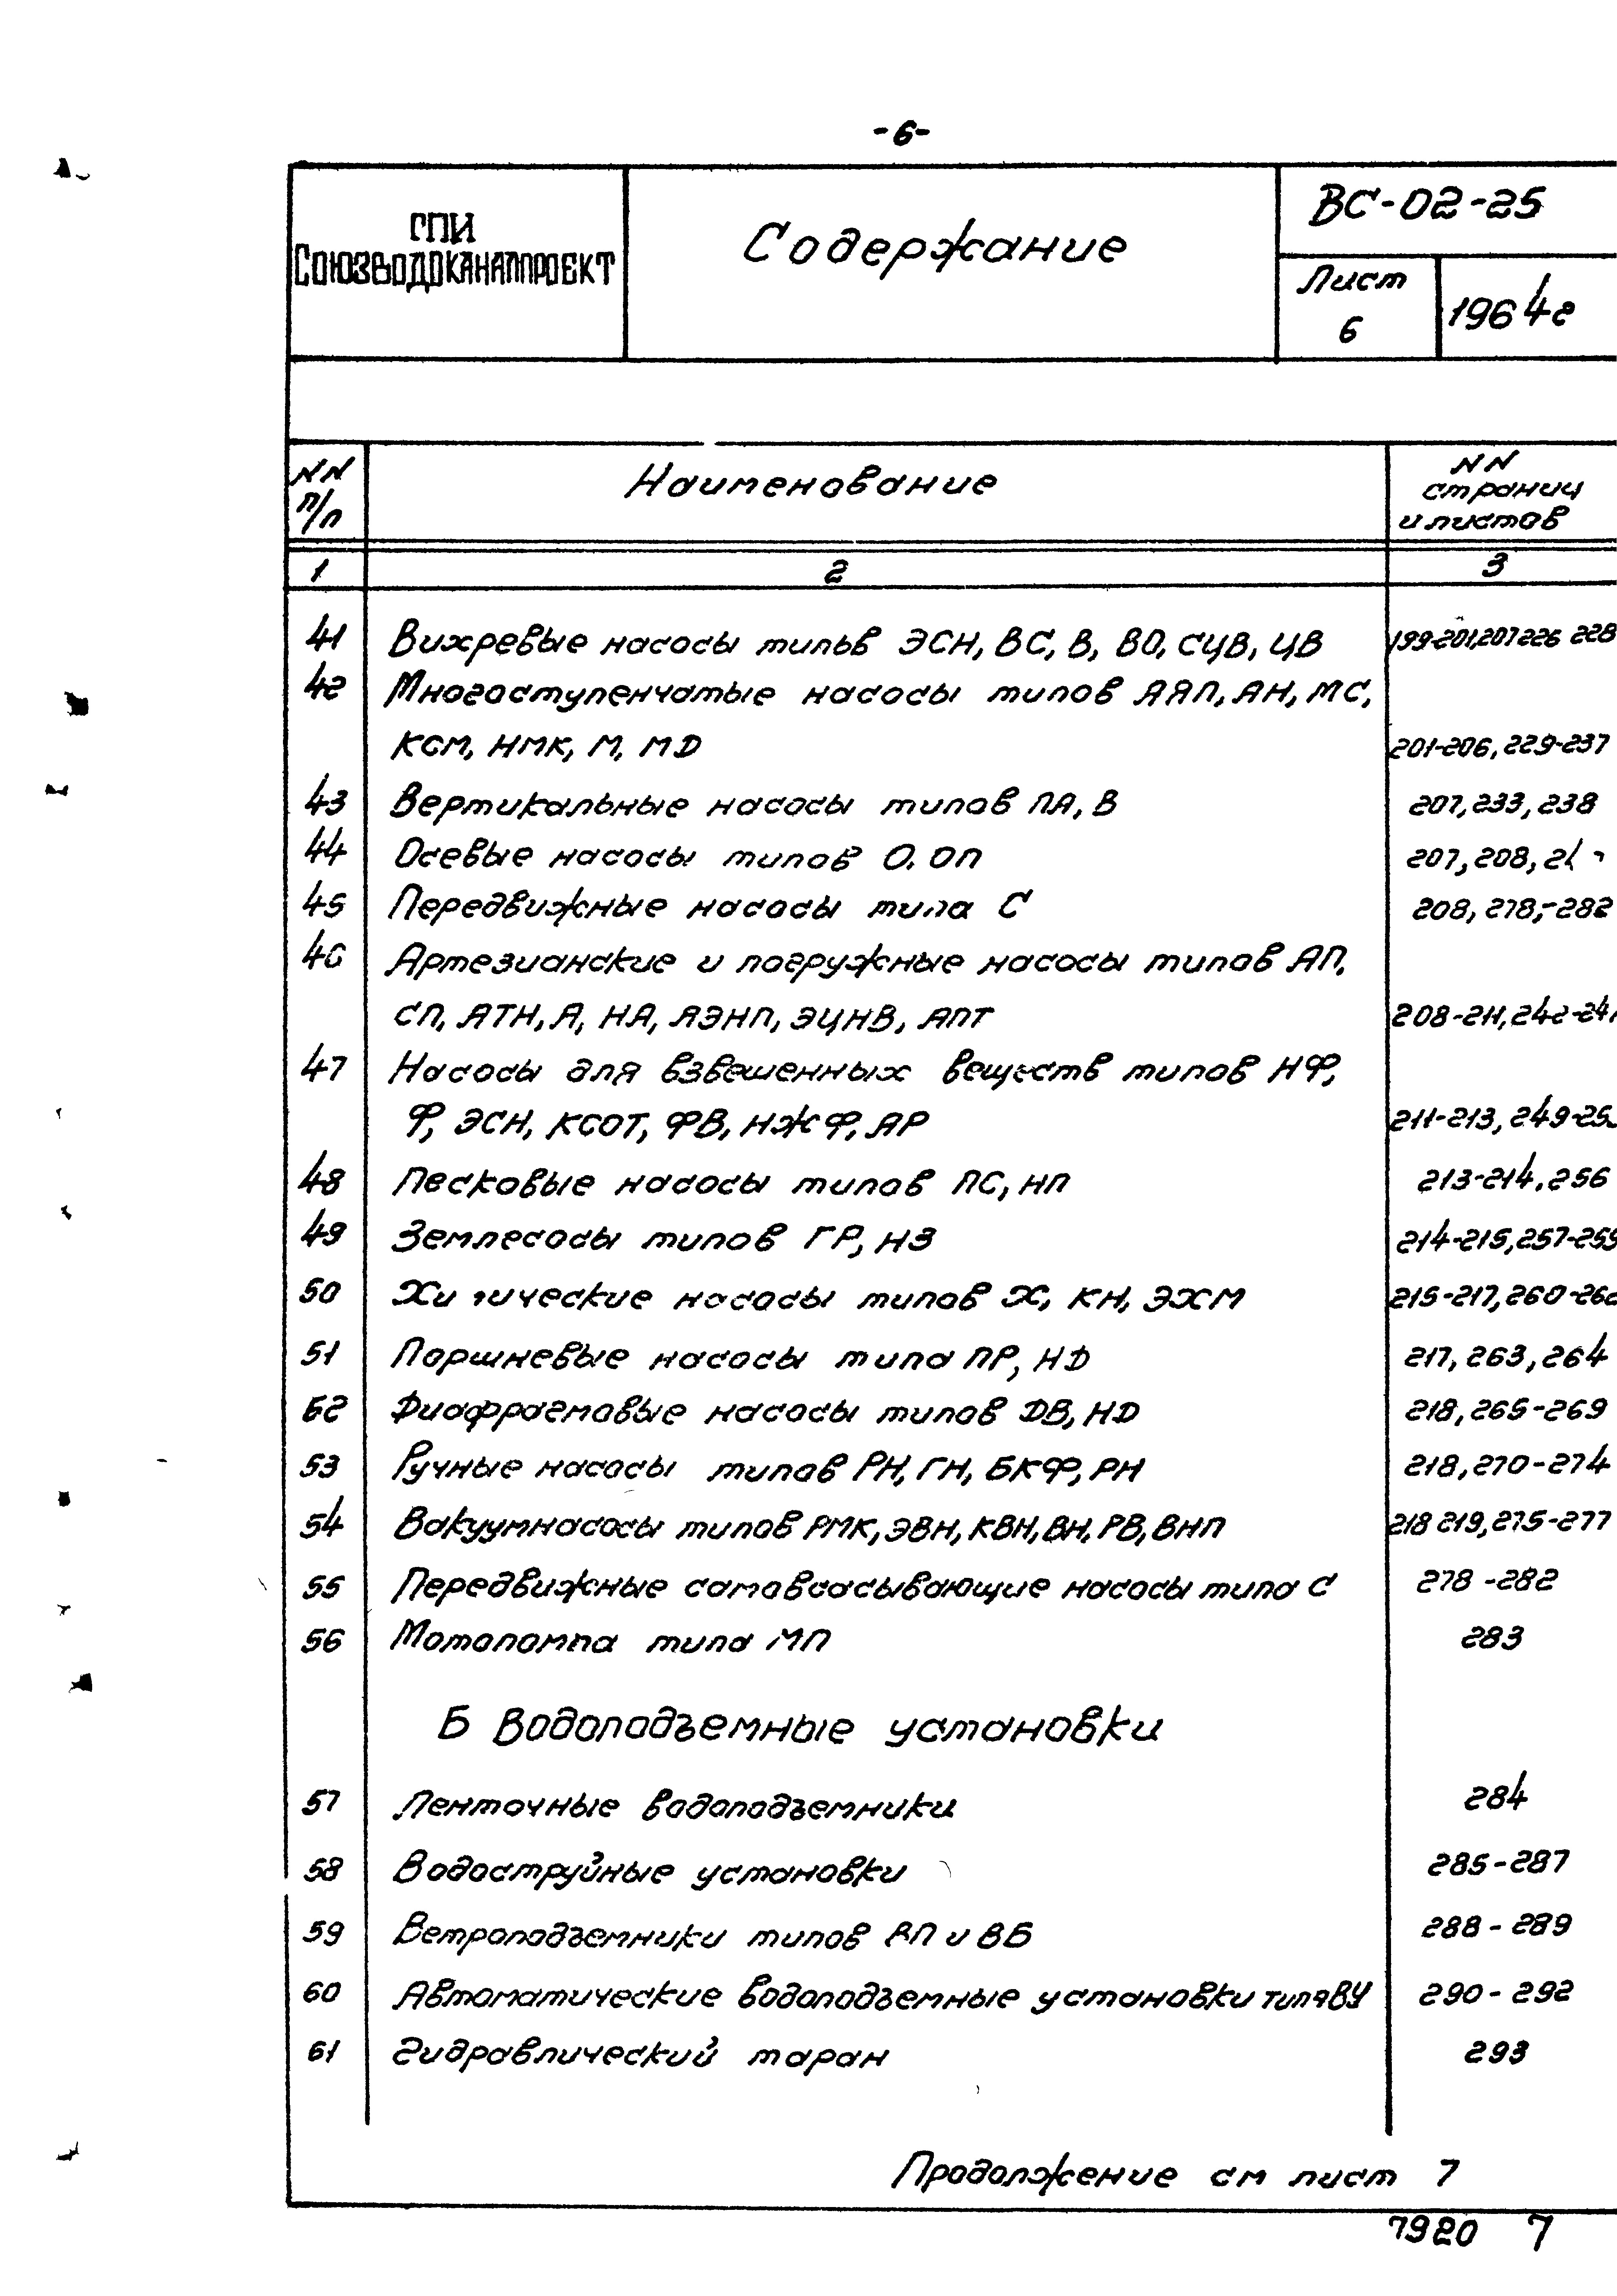 -6-
ГПИ
СОЮЗВОДОКАНАЛПРОЕКТ
Содержание
ВС-02-25
Лист
6
1964г
NN
п/п
Наименование
NN
страниц
и листов
1 2 3
41 Вихревые насосы типов ЭСН, ВС, В, ВО, СЦВ, ЦВ 199-201,207 226 228
42 Многоступенчатые насосы типов АЯП, АН, МС,
КСМ, НМК, М, МД 201-206, 229-237
43 Вертикальные насосы типов ПА, В 207, 233, 238
44 Осевые насосы типов О, ОП 207, 208,
45 Передвижные насосы типа С 208, 278,-282
46 Артезианские и погружные насосы типов АП,
СП, АТН, А, НА, АЭНП, ЭЦНВ, АПТ 208-211,
47 Насосы для взвешенных веществ типов НФ,
Ф, ЭСН, КСОТ, ФВ, НЖФ, АР 211-213,
48 Песковые насосы типов ПС, НП 213-214, 256
49 Землесосы типов ГР, НЗ 214-215, 257-259
50 Химические насосы типов Х, КН, ЭХМ 215-217,
51 Поршневые насосы типа ПР, НД 217, 263, 264
52 Диафрагмовые насосы типов ДВ, НД 218, 265-269
53 Ручные насосы типов РН, ГН, БКФ, РН 218, 270-274
54 Вакуумнасосы типов РМК, ЭВН, КВН, ВН, РВ, ВНП 218 219, 275-277
55 Передвижные самовсасывающие насосы типа С 278-282
56 Мотопомпа типа МП 283
Б Водоподъемные установки
57 Ленточные водоподъемники 284
58 Водоструйные установки 285-287
59 Ветроподъемники типов ВП и ВБ 288-289
60 Автоматические водоподъемные установки типа ВУ 290-292
61 Гидравлический таран 293
Продолжение см лист 7
7920 7